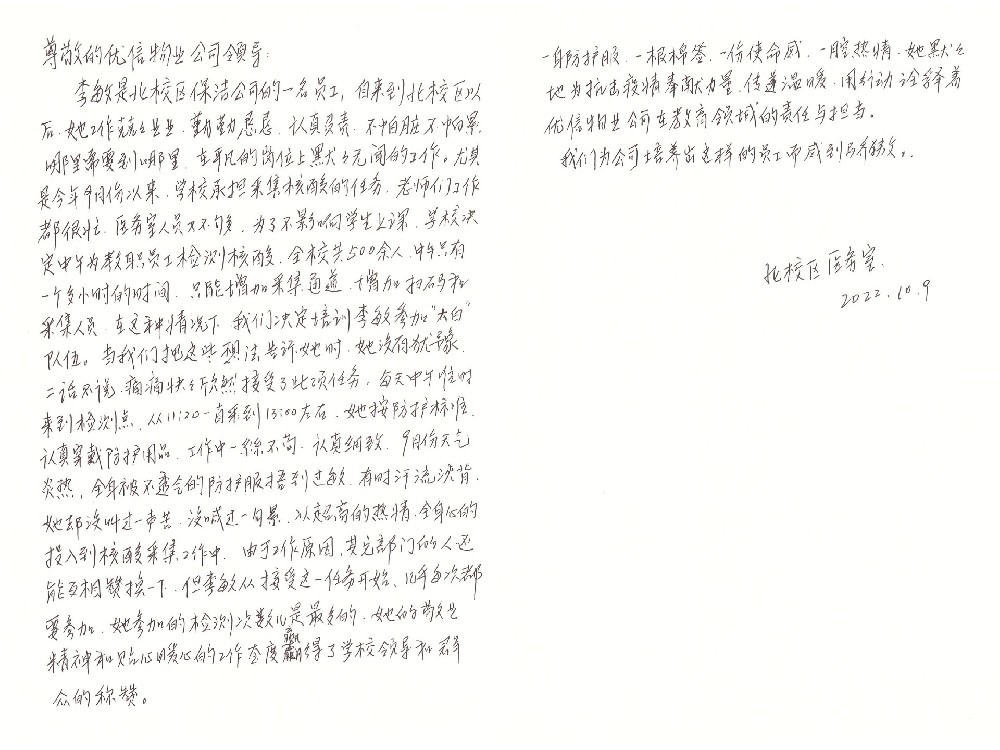 尊敬的优信物业公司领导:
李敏是北校区保洁公司的一名员工,自来到北校区以
后,她工作兢々业业、勤勤恳恳、认真负责、不怕脏不怕累,
哪里需要到哪里,在平凡的岗位上默々无闻的工作。尤其
是今年9月份以来,学校承担采集核酸的任务,老师们工作
都很忙,医务室人员又不够多,为了不影响学生上课,学校决
定中午为教职员工检测核酸,全校共500余人,中午只有
一个多小时的时间,只能增加采集通道,增加扫码和
采集人员,在这种情况下,我们决定培训李敏参加“大白”
队伍。当我们把这些想法告诉她时,她没有犹豫、
二话不说、痛痛快々欣然接受了此项任务,每天中午准时
来到检测点,从11:20一直采到13:00左右,她按防护标准、
认真穿戴防护用品,工作中一丝不苟、认真细致,9月份天气
炎热,全身被不透气的防护服捂到过敏、有时汗流浃背,
她却没叫过一声苦、没喊过一句累、以超高的热情、全身心的
投入到核酸采集工作中,由于工作原因,其它部门的人还
能互相替换一下,但李敏从接受这一任务开始、几乎每次都
要参加,她参加的检测次数儿是最多的,她的敬业
精神和贴心暖心的工作态度赢得了学校领导和群
众的称赞。
一身防护服、一根棉签、一份使命感、一腔热情,她默々
地为抗击疫情奉献力量、传递温暖、用行动诠释着
优信物业公司在教育领域的责任与担当。
我们为公司培养出这样的员工而感到骄傲。
北校区医务室
2022.10.9